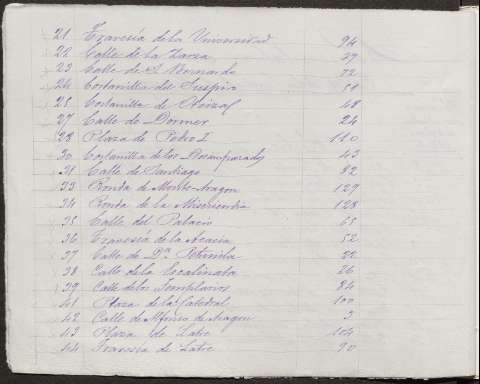 21 Travesía de la Universidad 94
22 Calle de la Zarza 29
23 Calle de S. Bernardo 72
24 Costanilla del Suspiro 51
25 Costanilla de Arizal 48
27 Calle de Dormer 24
28 Plaza de Pedro I 110
30 Costanilla de los Desamparados 43
31 Calle de Santiago 82
33 Ronda de Monte-Aragon 129
34 Ronda de la Misericordia 128
35 Calle del Palacio 65
36 Travesía de la Acacia 52
37 Calle de Dª Petronila 22
38 Calle de la Escalinata 26
39 Calle de los Templarios 84
41 Plaza de la Catedral 100
42 Calle de Alfonso de Aragon 3
43 Plaza de Latre 104
44 Travesía de Latre 90